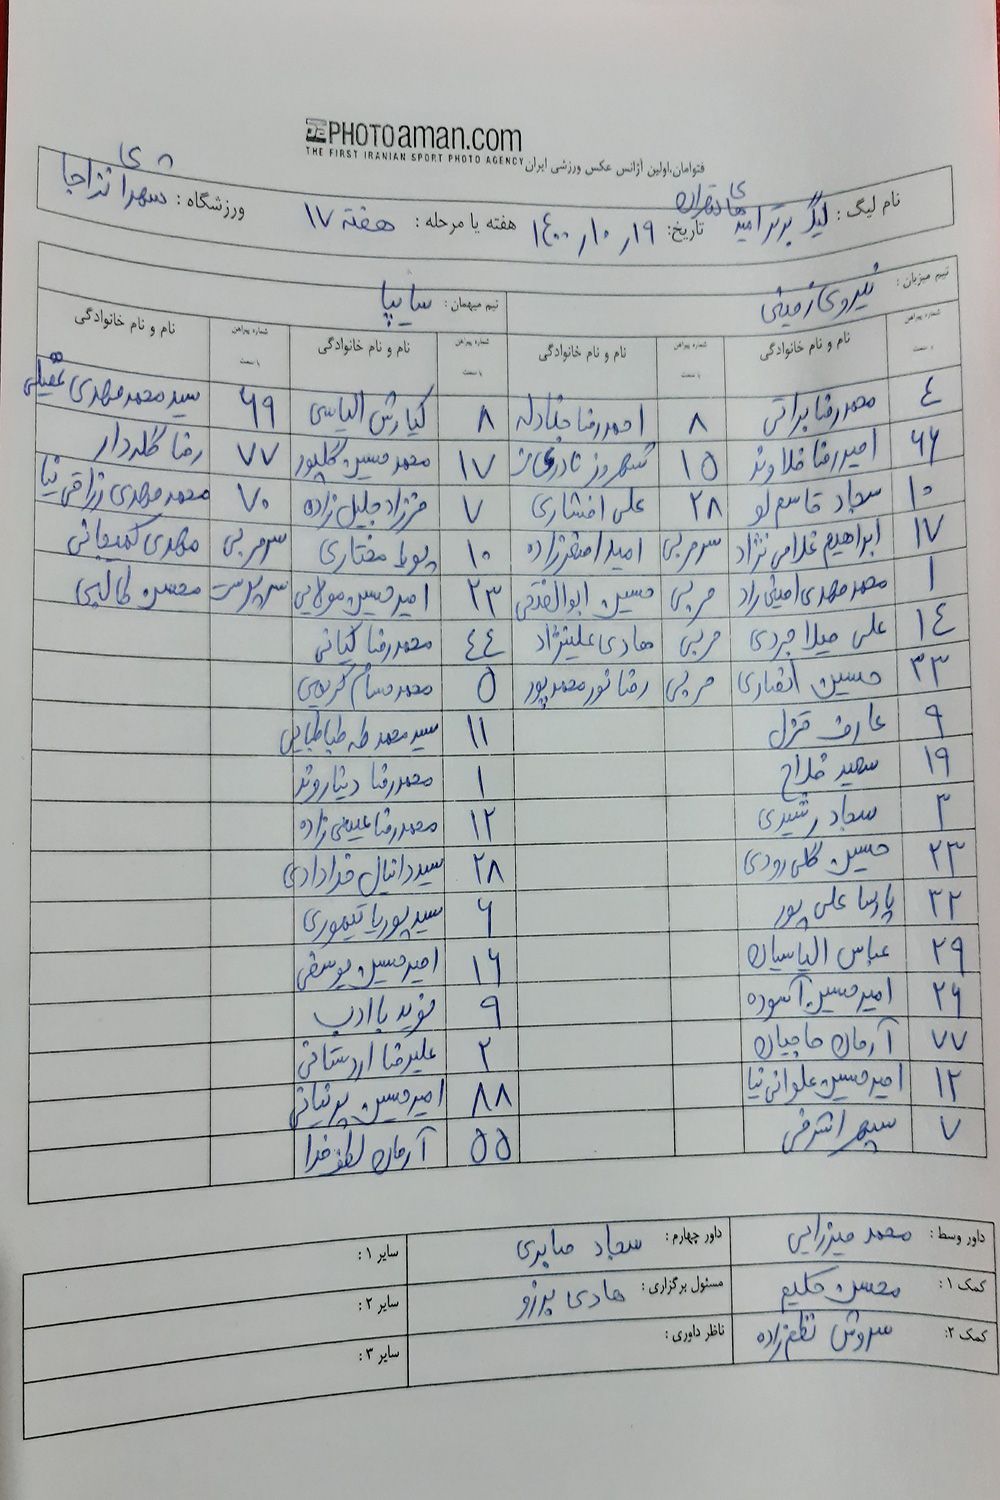 PHOTOaman.com
THE FIRST IRANIAN SPORT PHOTO AGENCY
فتوامان،اولین آژانس عکس ورزشی ایران
نام لیگ : لیگ برتر امید های تهران تاریخ: ۱۴۰۰/۱۰/۱۹ هفته یا مرحله : هفته ۱۷ ورزشگاه : شهدا نزاجا
تیم میزبان : نیروی زمینی تیم میهمان : سایپا
شماره پیراهن یا سمت نام و نام خانوادگی شماره پیراهن یا سمت نام و نام خانوادگی شماره پیراهن یا سمت نام و نام خانوادگی شماره پیراهن یا سمت نام و نام خانوادگی
۴ محمدرضا براتی ۸ احمدرضا ۸ کیارش الیاسی ۶۹ سید محمد مهدی عقیلی
۶۶ امیررضا فلاوند ۱۵ ۱۷ محمد حسین گلپور ۷۷ رضا گله دار
۱۰ سجاد قاسم لو ۲۸ علی افشاری ۷ فرزاد جلیل زاده ۷۰ محمد مهدی رزاقی نیا
۱۷ ابراهیم غلامی نژاد سرمربی امید اصغرزاده ۱۰ مختاری سرمربی مهدی کمیجانی
۱ محمد مهدی امینی راد مربی حسین ابوالفتحی ۲۳ امیرحسین مولایی سرپرست محسن طالبی
۱۴ علی میلاجردی مربی هادی علینژاد ۴۴ محمدرضا کیانی
۳۳ حسین انصاری مربی رضا نورمحمدپور ۵ محمد حسام کریمی
۹ عارف قزل ۱۱ سید محمد طه طباطبایی
۱۹ سعید فلاح ۱ محمدرضا دیناروند
۳ سجاد رشیدی ۱۲ محمدرضا عیسی زاده
۲۳ حسین گلی رودی ۲۸ سید دانیال خدادادی
۳۲ پارسا علی پور ۶ سید پوریا تیموری
۲۹ عباس الیاسیان ۱۶ امیرحسین یوسفی
۲۶ امیرحسین آسوده ۹ نوید باادب
۷۷ آرمان حاجیان ۲ علیرضا اردستانی
۱۲ امیرحسین علوانی نیا ۸۸ امیرحسین پرنیانی
۷ سپهر اشرفی ۵۵ آرمان لطف خدا
داور وسط : محمد میرزایی داور چهارم : سجاد صابری سایر ۱ :
کمک ۱ : محسن حکیم مسئول برگزاری : هادی برزو سایر ۲ :
کمک ۲: سروش نظم زاده ناظر داوری : سایر ۳ :